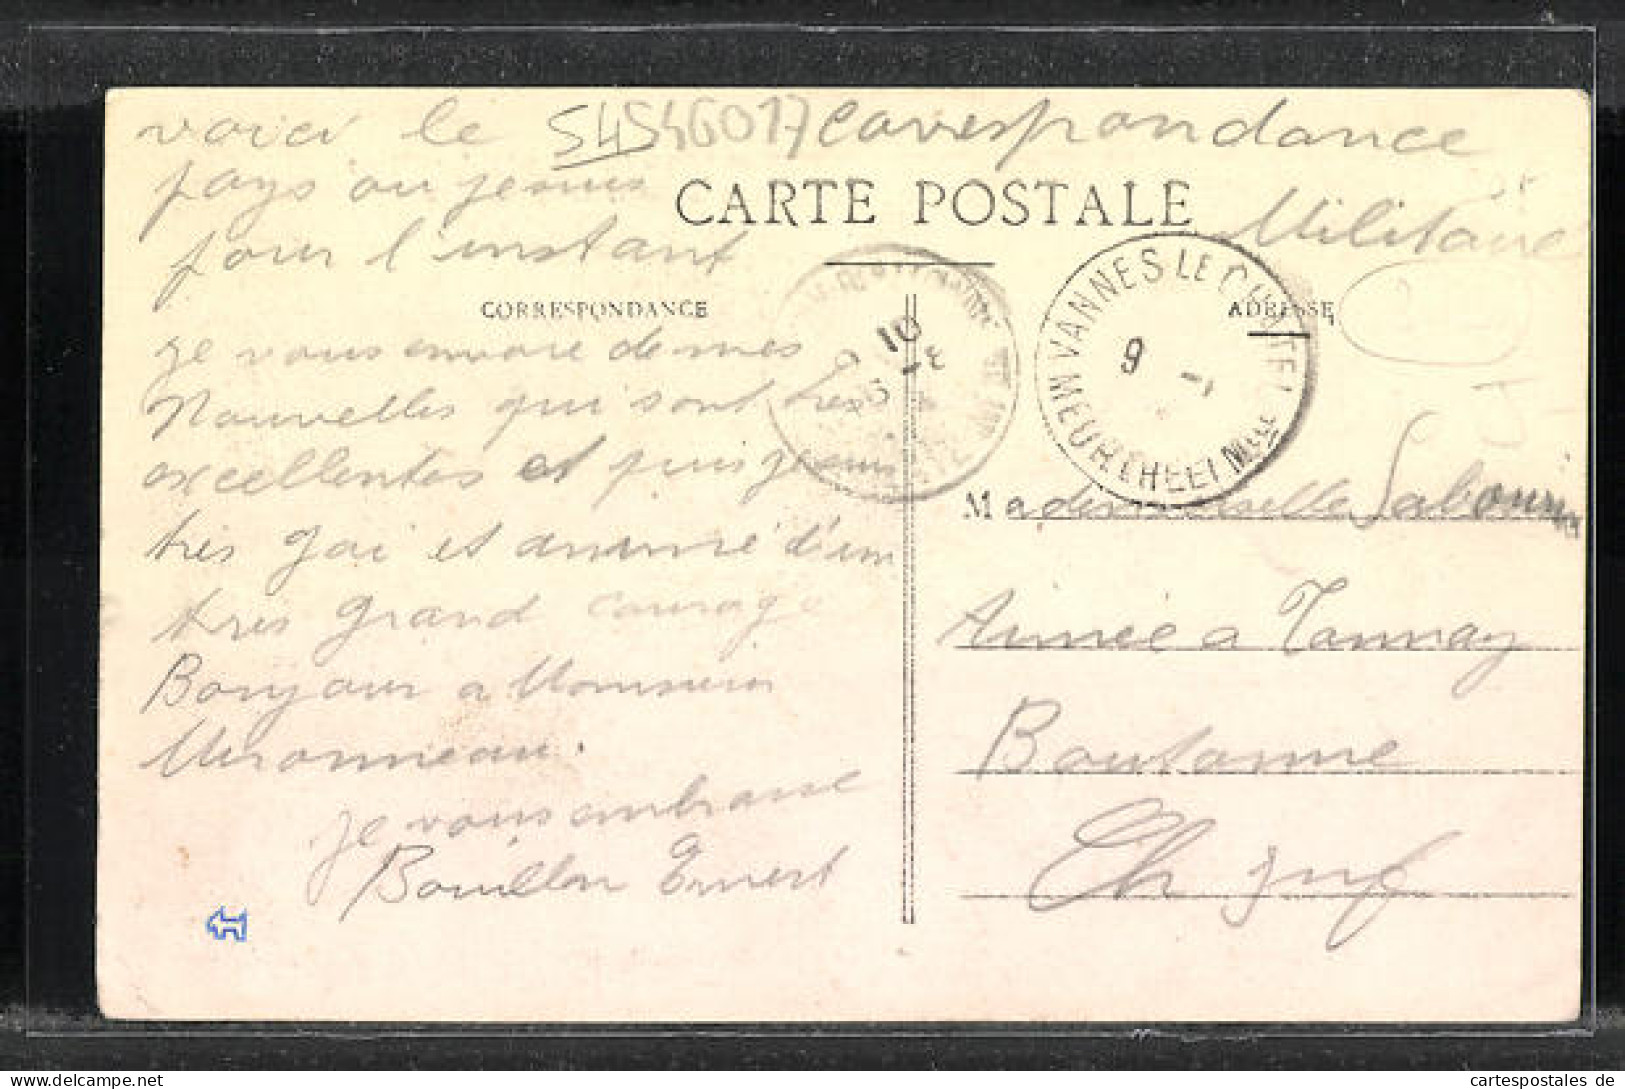 voici le 54546017 Corespondance
pays ou je suis
CARTE POSTALE
Militaire
pour l'instant
CORRESPONDANCE
ADRESSE
VANNES LE CHATEL
MEURTHE ET Mlle
9
10
je vous envoie de mes
Nouvelles qui sont tres
excellentes et puis je suis
tres gai et animé d'un
tres grand courage
Bonjour a Monsieur
je vous embrasse
Bouillon Ernest
Mademoiselle Sabourin
Aimée a Tonnay
Boutonne
Ch Inf
cartespostales de